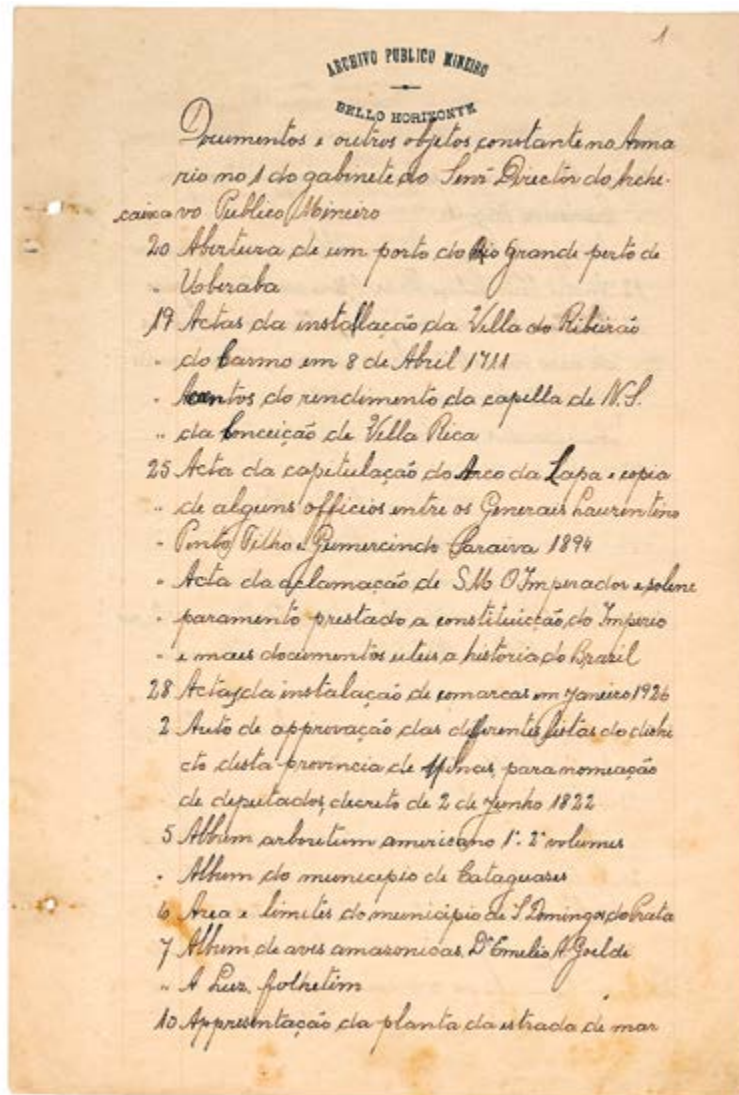 1
ARCHIVO PUBLICO MINEIRO
BELLO HORIZONTE
Documentos e outros objetos constante no Arma
rio no 1 do gabinete do Senr Director do Arche-
caixa vo Publico Mineiro
20 Abertura de um porto do Rio Grande perto de
" Uberaba
19 Actas da installacão da Villa do Ribeirão
" do Carmo em 8 de Abril 1711
" do rendimento da capella de N. S.
" da Conceição de Villa Rica
25 Acta da capitulação do Arco da Lapa e copia
" de alguns officios entre os Generais Laurentino
" Pinto Filho e Gumercindo Saraiva 1894
" Acta da aclamação de S. M. O Imperador e solene
" paramento prestado a constituicção do Imperio
" e mais documentos uteis a historia do Brazil
28 Actas da instalacão de comarcas em Janeiro 1926
2 Auto de approvação das differentes listas do distri
cto desta provincia de Minas, para nomeação
de deputados, decreto de 2 de Junho 1822
5 Album arboretum americano 1º. 2º volumes
" Album do municepio de Cataguases
6 Area e limites do municipio de S. Domingos do Prata
7 Album de aves amazonicas. Dr Emilio A. Goeldi
" A Luz. folhetim
10 Appresentação da planta da estrada de mar